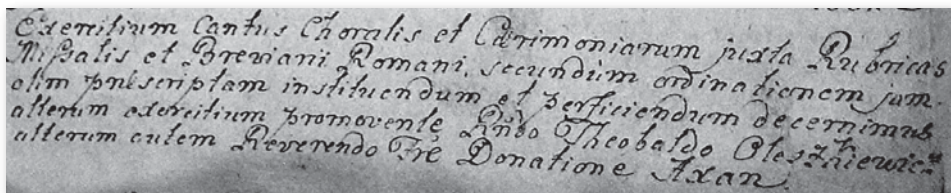 Exercitium Cantus Choralis et Cærimoniarum juxta Rubricas
Missalis et Breviarii Romani, secundum ordinationem jam
olim præscriptam instituendum et perficiendum decernimus
alterum exercitium promovente Rndo Theobaldo
alterum autem Reverendo Fre Donatione Axan